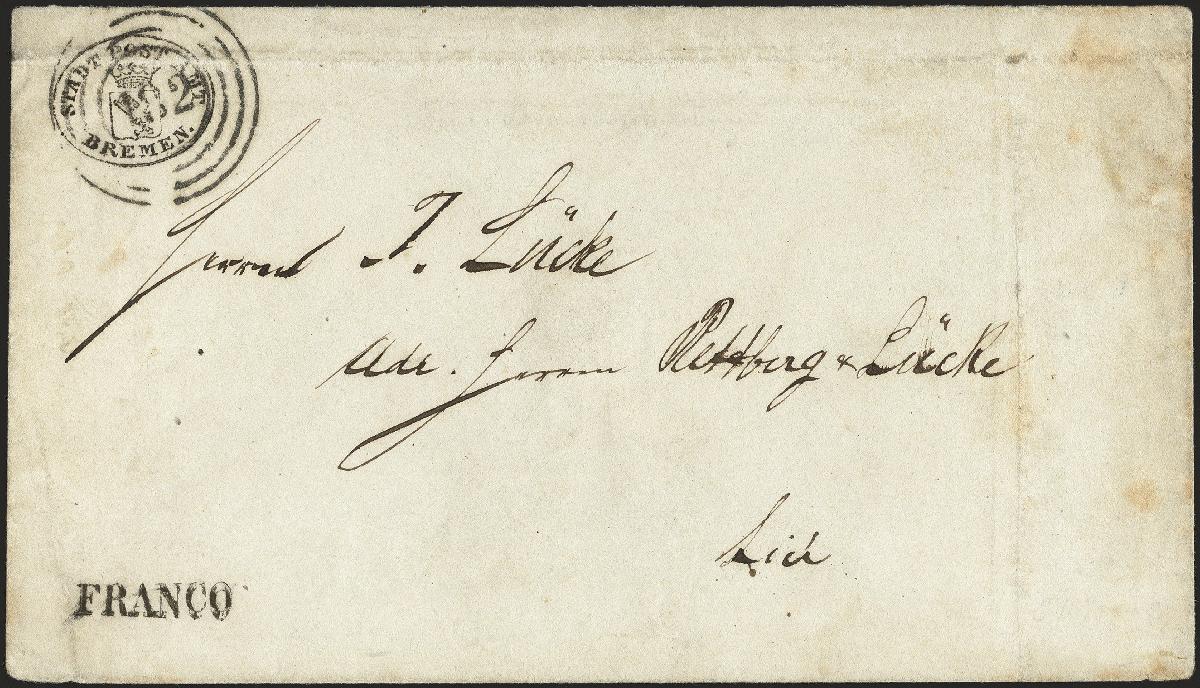 STADT POST AMT
BREMEN.
Herrn J. Lücke
Adr. Herrn Rettberg & Lücke
hier
FRANCO